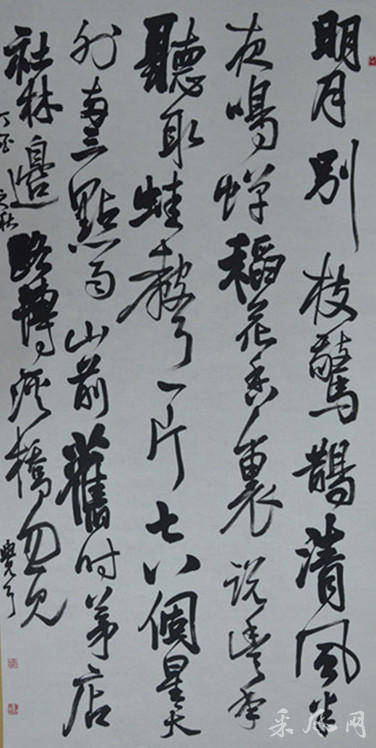 明月別枝驚鵲清風半
夜鳴蟬稻花香裏說豐年
聽取蛙聲一片七八個星天
外兩三點雨山前舊時茅店
社林邊路轉溪橋忽見
丁酉之秋
采风网